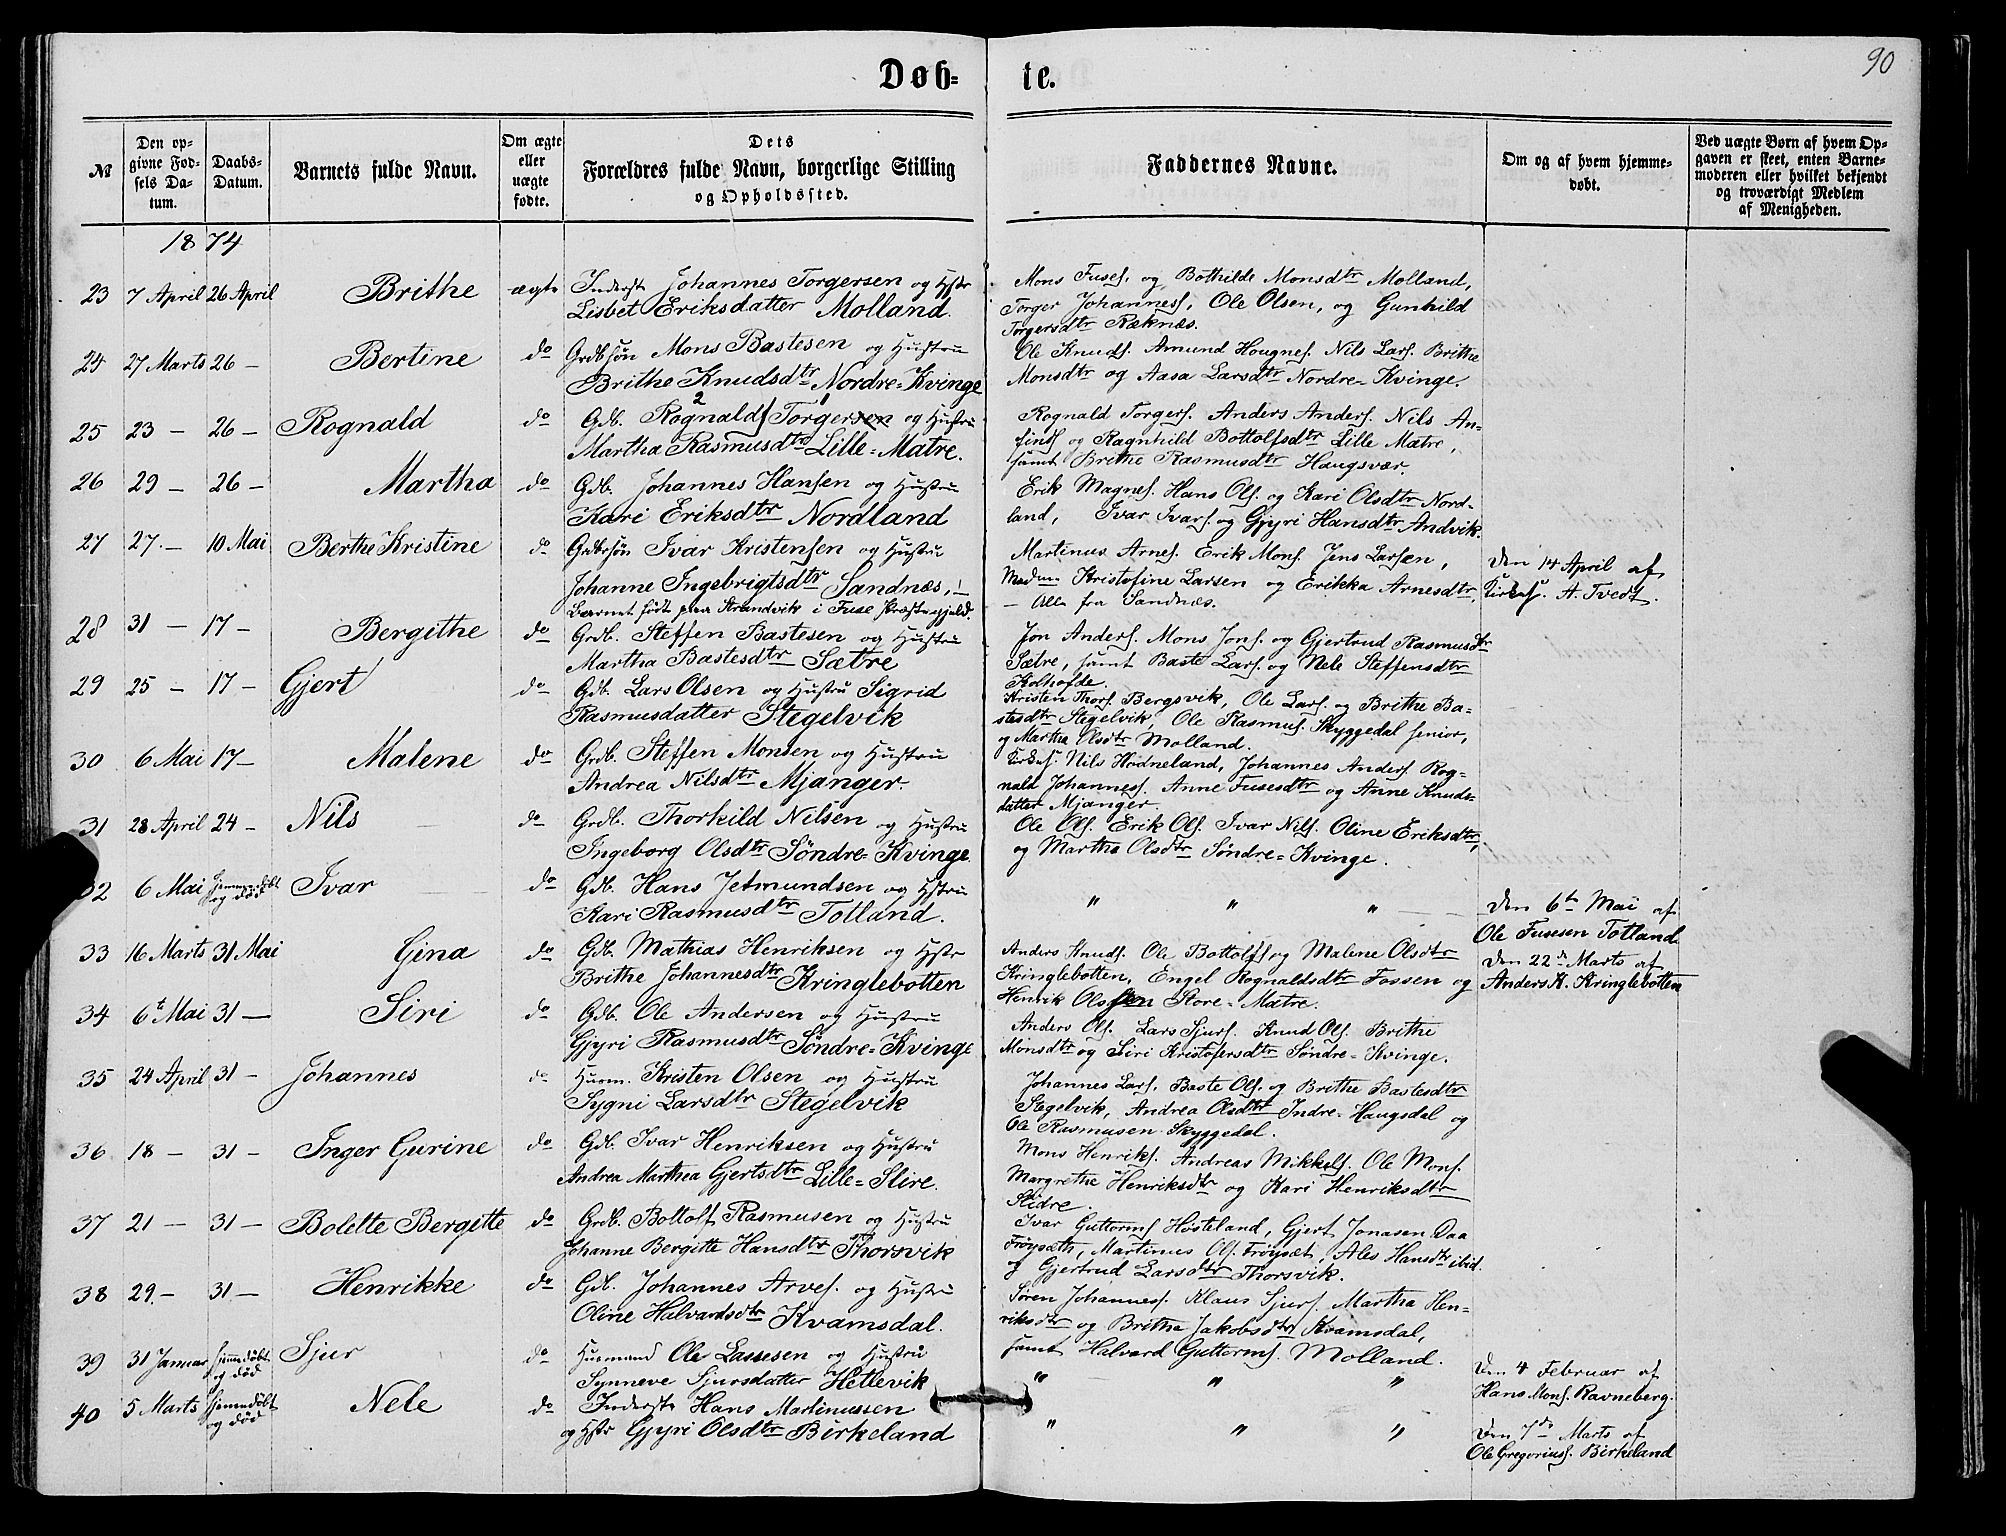 90
Døb- te.
№ Den op- givne Fød- sels Da- tum. Daabs- Datum. Barnets fulde Navn. Om ægte eller uægte fødte. Dets Forældres fulde Navn, borgerlige Stilling og Opholdssted. Faddernes Navne. Om og af hvem hjemme- døbt. Ved uægte Børn af hvem Op- gaven er skeet, enten Barne- moderen eller hvilket bekjendt og troværdigt Medlem af Menigheden.
1874
23 7 April 26 April Brithe ægte Inderst Johannes Torgersen og Hstr
Lisbet Eriksdatter Molland.
Mons Fuses. og Bothilde Monsdtr Molland,
Torger Johanness, Ole Olsen, og Gunhild
Torgersdtr Ræknæs.
24 27 Marts 26 – Bertine do Grdbsøn Mons Bastesen og Hustru
Brithe Knudsdtr Nordre-Kvinge
Ole Knuds. Amund Hougnes. Nils Lars. Brithe
Monsdtr og Aasa Larsdtr Nordre-Kvinge.
25 23 – 26 – Rognald do Gdb. Rognalds Torgersen og Hustru
Martha Rasmusdtr Lille-Matre.
Rognald Torgers. Anders Anders. Nils An-
finds og Ragnhild Bottolfsdtr Lille Matre,
samt Brithe Rasmusdtr Haugsvær.
26 29 – 26 – Martha do Gdb. Johannes Hansen og Hustru
Kari Eriksdtr Nordland
Erik Magnes. Hans Ols. og Kari Olsdtr Nord-
land, Ivar Ivars. og Gjyri Hansdtr Andvik.
27 27. – 10 Mai Berthe Kristine do Grdbrsøn Ivar Kristensen og Hustru
Johanne Ingebrigtsdtr Sandnæs, –
Barnet født paa Strandvik i Fuse Præstegjeld.
Martinus Arnes. Erik Mons. Jens Larsen,
Madm Kristofine Larsen og Erikka Arnesdtr,
– Alle fra Sandnæs.
Den 14 April af
Kirkes. A. Tvedt.
28 31 – 17 – Bergithe do Grdb. Steffen Bastesen og Hustru
Martha Bastesdtr Sætre
Jon Anders. Mons Jons. og Gjertrud Rasmusdtr
Sætre, samt Baste Lars. og Nele Steffensdtr
Kolhofde.
29 25 – 17 – Gjert do Gdb. Lars Olsen og Hustru Sigrid
Rasmusdatter Stegelvik
Kristen Thors. Bergsvik, Ole Lars. og Brithe Ba-
stesdtr Stegelvik, Ole Rasmus. Skyggedal senior,
og Martha Olsdtr Molland.
30 6 Mai 17 – Malene do Grdb. Steffen Monsen og Hustru
Andrea Nilsdtr Mjanger.
Kirkes. Nils Hødneland, Johannes Anders. Rog-
nald Johannes. Anne Fusesdtr og Anne Knuds-
datter Mjanger.
31 28 April 24 – Nils do Grdb. Thorkild Nilsen og Hustru
Ingeborg Olsdtr Søndre-Kvinge.
Ole Ols. Erik Ols. Ivar Nils. Oline Eriksdtr,
og Martha Olsdtr Søndre-Kvinge.
32 6 Mai hjemmedøbt og død Ivar do Gdb. Hans Jetmundsen og Hstru
Kari Rasmusdtr Totland.
" " "
Den 6te Mai af
Ole Fusesen Totland
33 16 Marts 31 Mai Gina do Gdb. Mathias Henriksen og Hstr
Brithe Johannesdtr Kringlebotten
Anders Knuds. Ole Bottolfs og Malene Olsdtr
Kringlebotten, Engel Rognaldsdtr Fossen og
Henrik Olssen Store-Matre.
Den 22de Marts af
Anders K. Kringlebotten
34 6te Mai 31 – Siri do Gdb. Ole Andersen og Hustru
Gjyri Rasmusdtr Søndre-Kvinge
Anders Ols. Lars Sjurs. Knud Ols. Brithe
Monsdtr og Siri Kristofersdtr Søndre-Kvinge.
35 24 April 31 – Johannes do Husm. Kristen Olsen og Hustru
Sygni Larsdtr Stegelvik
Johannes Lars. Baste Ols. og Brithe Bastesdtr
Stegelvik, Andrea Olsdtr Indre-Haugsdal og
Ole Rasmusen Skyggedal.
36 18 – 31 – Inger Gurine do Gdb. Ivar Henriksen og Hustru
Andrea Marthea Gjertsdtr Lille-Slire.
Mons Henriks. Andreas Mikkels. Ole Mons.
Margrethe Henriksdtr og Kari Henriksdtr
Slidre.
37 21 – 31 – Bolette Bergitte do Grdb. Bottolf Rasmusen og Hustru
Johanne Bergitte Hansdtr Thorsvik
Ivar Guttorms Høsteland, Gjert Jonasen Daa
Frøysæth, Martinus Ols. Frøysæt, Ales Hansdtr ibid.
og Gjertrud Larsdtr Thorsvik.
38 29. – 31 – Henrikke do Gdb. Johannes Arves. og Hustru
Oline Halvardsdtr Kvamsdal.
Søren Johanness. Klaus Sjurs. Martha Hen-
riksdtr og Brithe Jakobsdtr Kvamsdal,
samt Halvard Guttorms. Molland.
39 31 Januar hjemmedøbt og død Sjur do Husmand Ole Lassesen og Hustru
Synneve Sjursdatter Hetlevik
" " "
Den 4 Februar af
Hans Mons. Ravneberg.
40 5 Marts hjemmedøbt og død Nele do Inderste Hans Martinussen
og Hstr Gjyri Olsdtr Birkeland
" " "
Den 7de Marts af
Ole Gregorius. Birkeland